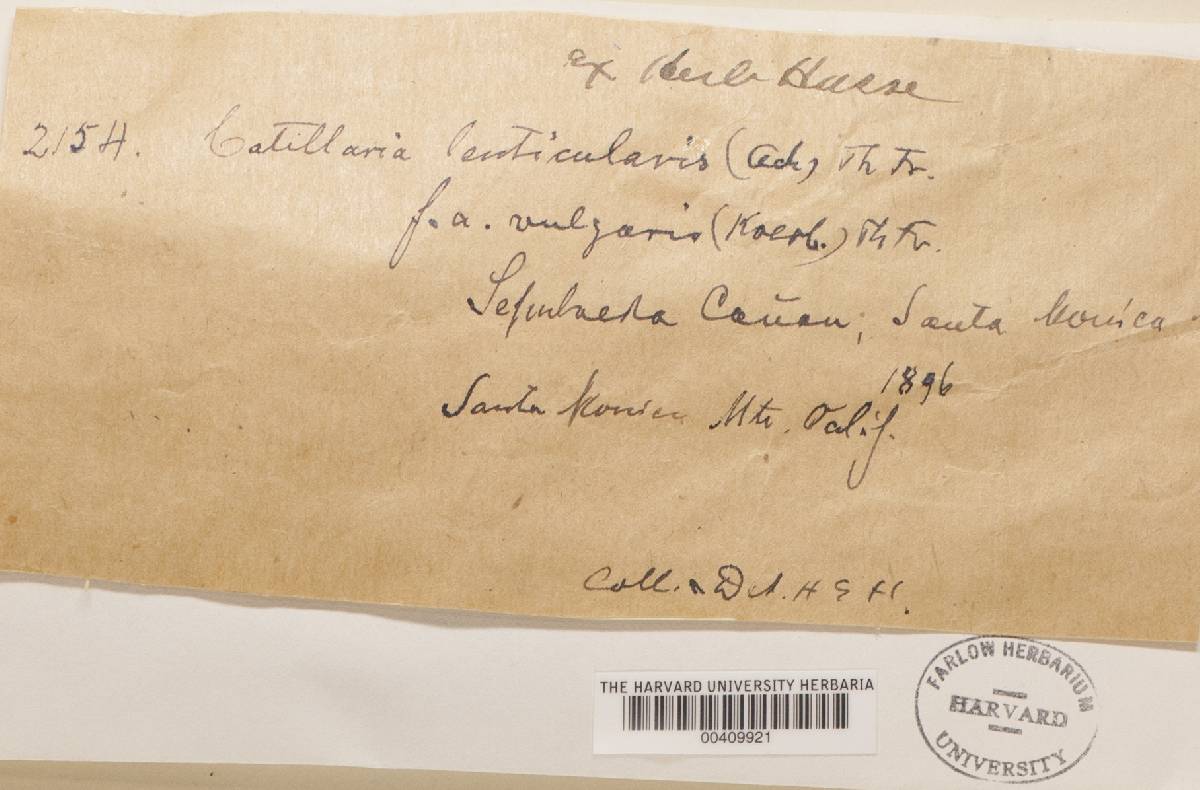 ex Herb Hasse
215H. Catillaria lenticularis (Ach) Th Fr.
f. a. vulgaris (Koerb.) Th Fr.
Sepulveda Cañon, Santa Monica
1896
Santa Monica Mts. Calif.
Coll. & Det. H E H.
THE HARVARD UNIVERSITY HERBARIA
00409921
FARLOW HERBARIUM
HARVARD
UNIVERSITY